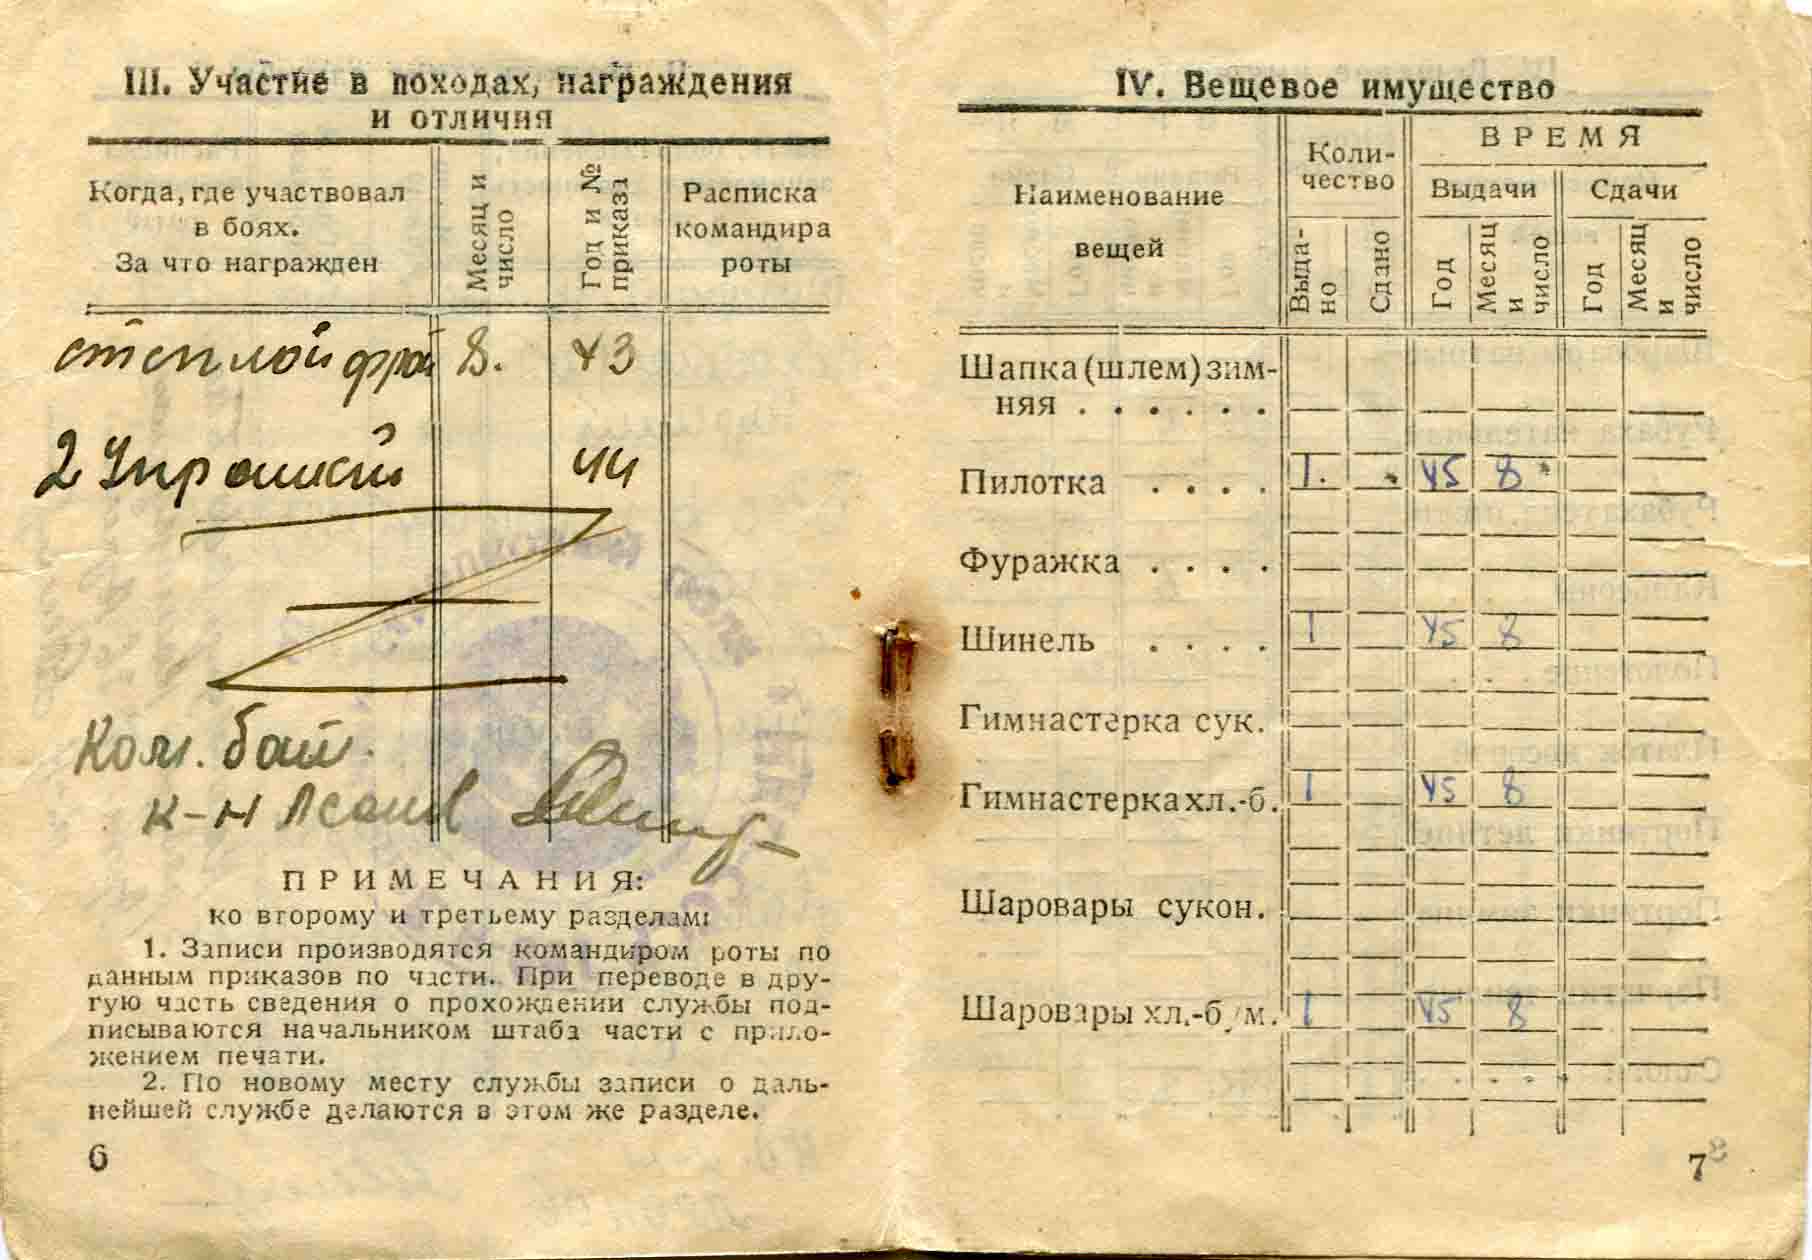 III. Участие в походах, награждения
и отличия
Когда, где участвовал
в боях.
За что награжден
Месяц и
число
Год и №
приказа
Расписка
командира
роты
степной фрон 8. 43
2 Украинский 44
Ком. бат.
к-н
ПРИМЕЧАНИЯ:
ко второму и третьему разделам:
1. Записи производятся командиром роты по
данным приказов по части. При переводе в дру-
гую часть сведения о прохождении службы под-
писываются начальником штаба части с прило-
жением печати.
2. По новому месту службы записи о даль-
нейшей службе делаются в этом же разделе.
6
IV. Вещевое имущество
Наименование
вещей
Коли-
чество
ВРЕМЯ
Выдачи
Сдачи
Выда-
но
Сдано
Год
Месяц
и
число
Год
Месяц
и
число
Шапка (шлем) зим-
няя . . . . . .
Пилотка . . . . 1. 45 8
Фуражка . . . .
Шинель . . . . 1 45 8
Гимнастерка сук.
Гимнастерка хл.-б. 1 45 8
Шаровары сукон.
Шаровары хл.-б/м. 1 45 8
7